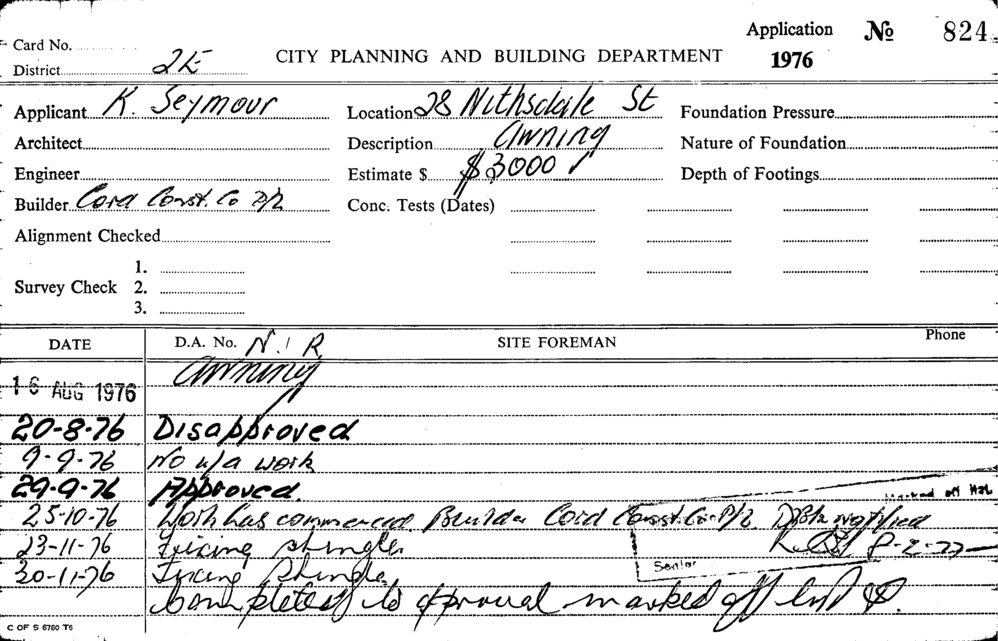 Application № 824
Card No.
District 2E CITY PLANNING AND BUILDING DEPARTMENT 1976
Applicant K. Seymour Location 28 Nithsdale St Foundation Pressure
Architect Description Awning Nature of Foundation
Engineer Estimate $ $3000 Depth of Footings
Builder Cord Const. Co P/L Conc. Tests (Dates)
Alignment Checked
1.
Survey Check 2.
3.
DATE D.A. No. N.I.R SITE FOREMAN Phone
16 AUG 1976 Awning
20-8-76 Disapproved
9-9-76 No u/a work
29-9-76 Approved.
Marked off
25-10-76 Work has commenced. Builder Cord Const. Co P/L. notified
23-11-76 Fixing shingles 8-2-77
30-11-76 Fixing Shingles Senior
Completed to approval marked off
C OF S 6760 T6